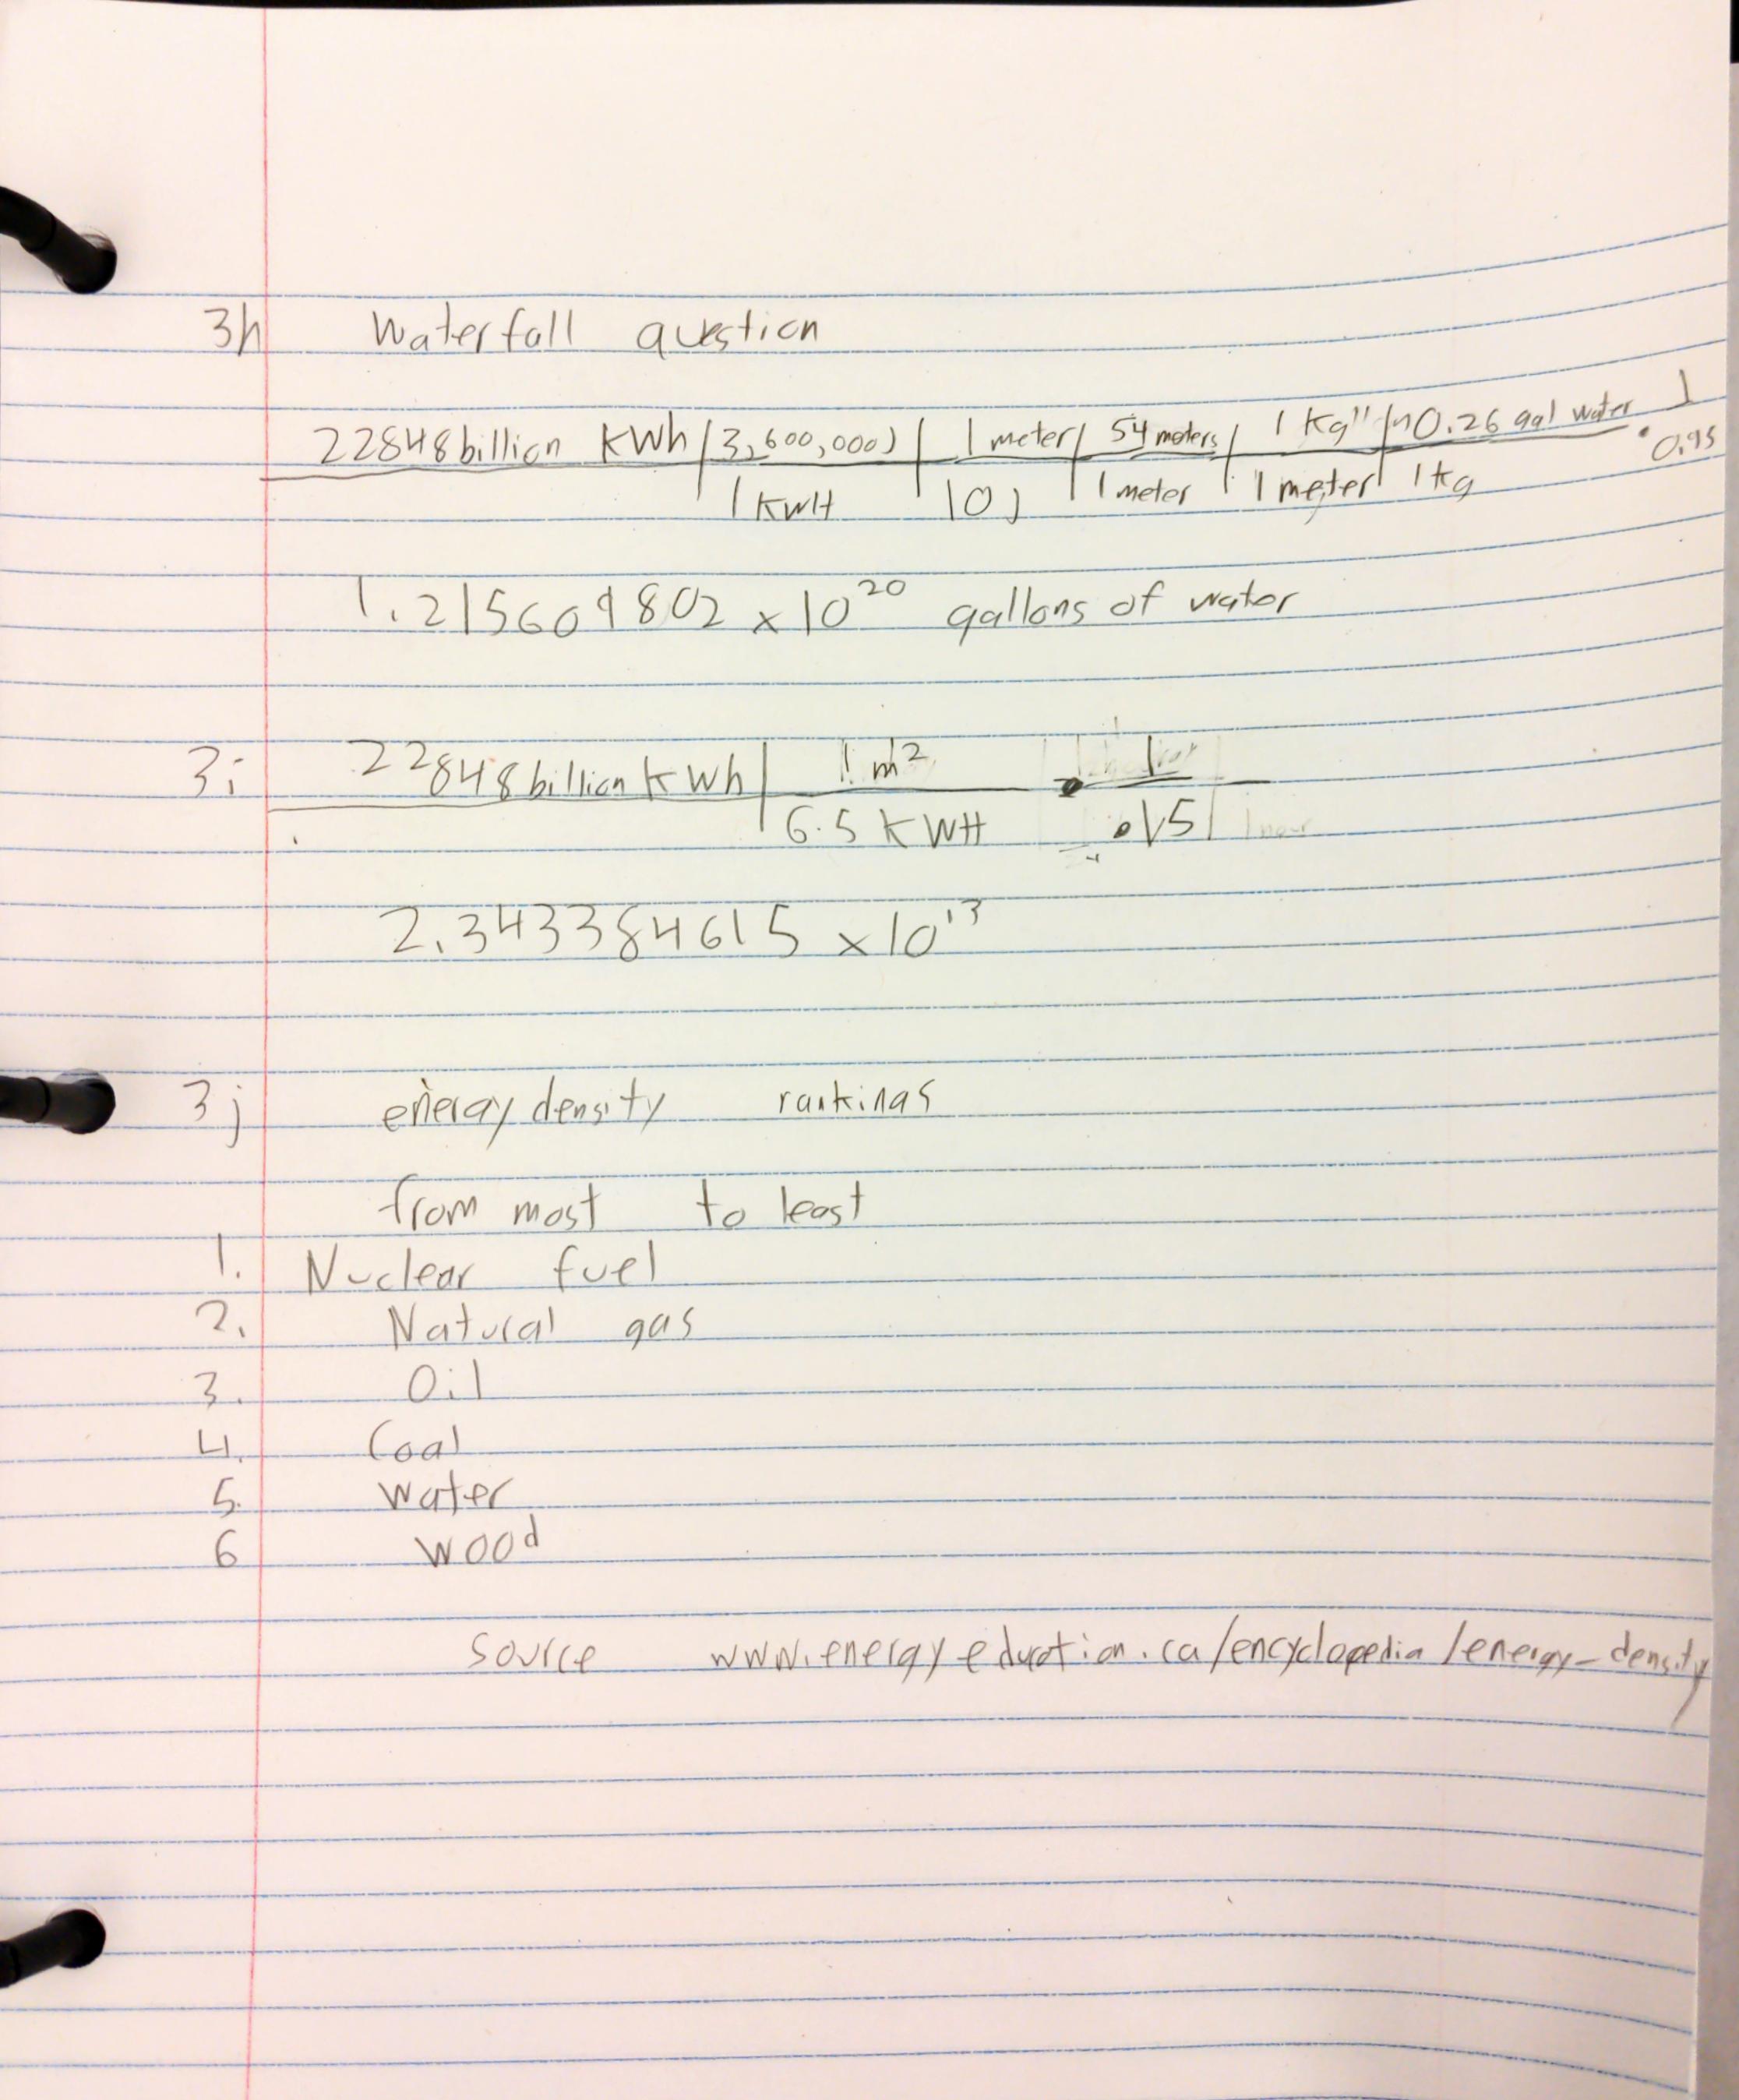 3h Waterfall question
22848 billion KWh | 3,600,000 J | 1 meter | 54 meters | 1 Kg | 0.26 gal water 1
1 KWH 10 J 1 meter 1 meter 1 kg • 0.95
1.215609802 x 10^20 gallons of water
3i 22848 billion KWh | 1 m² • 1
6.5 KWH .15
2.343384615 x 10^13
3j energy density rankings
from most to least
1. Nuclear fuel
2. Natural gas
3. Oil
4. Coal
5. Water
6 Wood
Source www.energyeducation.ca/encyclopedia/energy_density